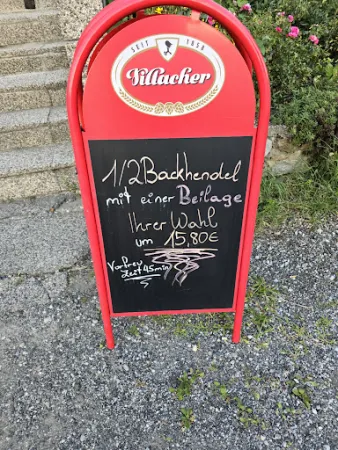 SEIT 1858
Villacher
1/2 Backhendel
mit einer Beilage
Ihrer Wahl
um 15,80€
45min